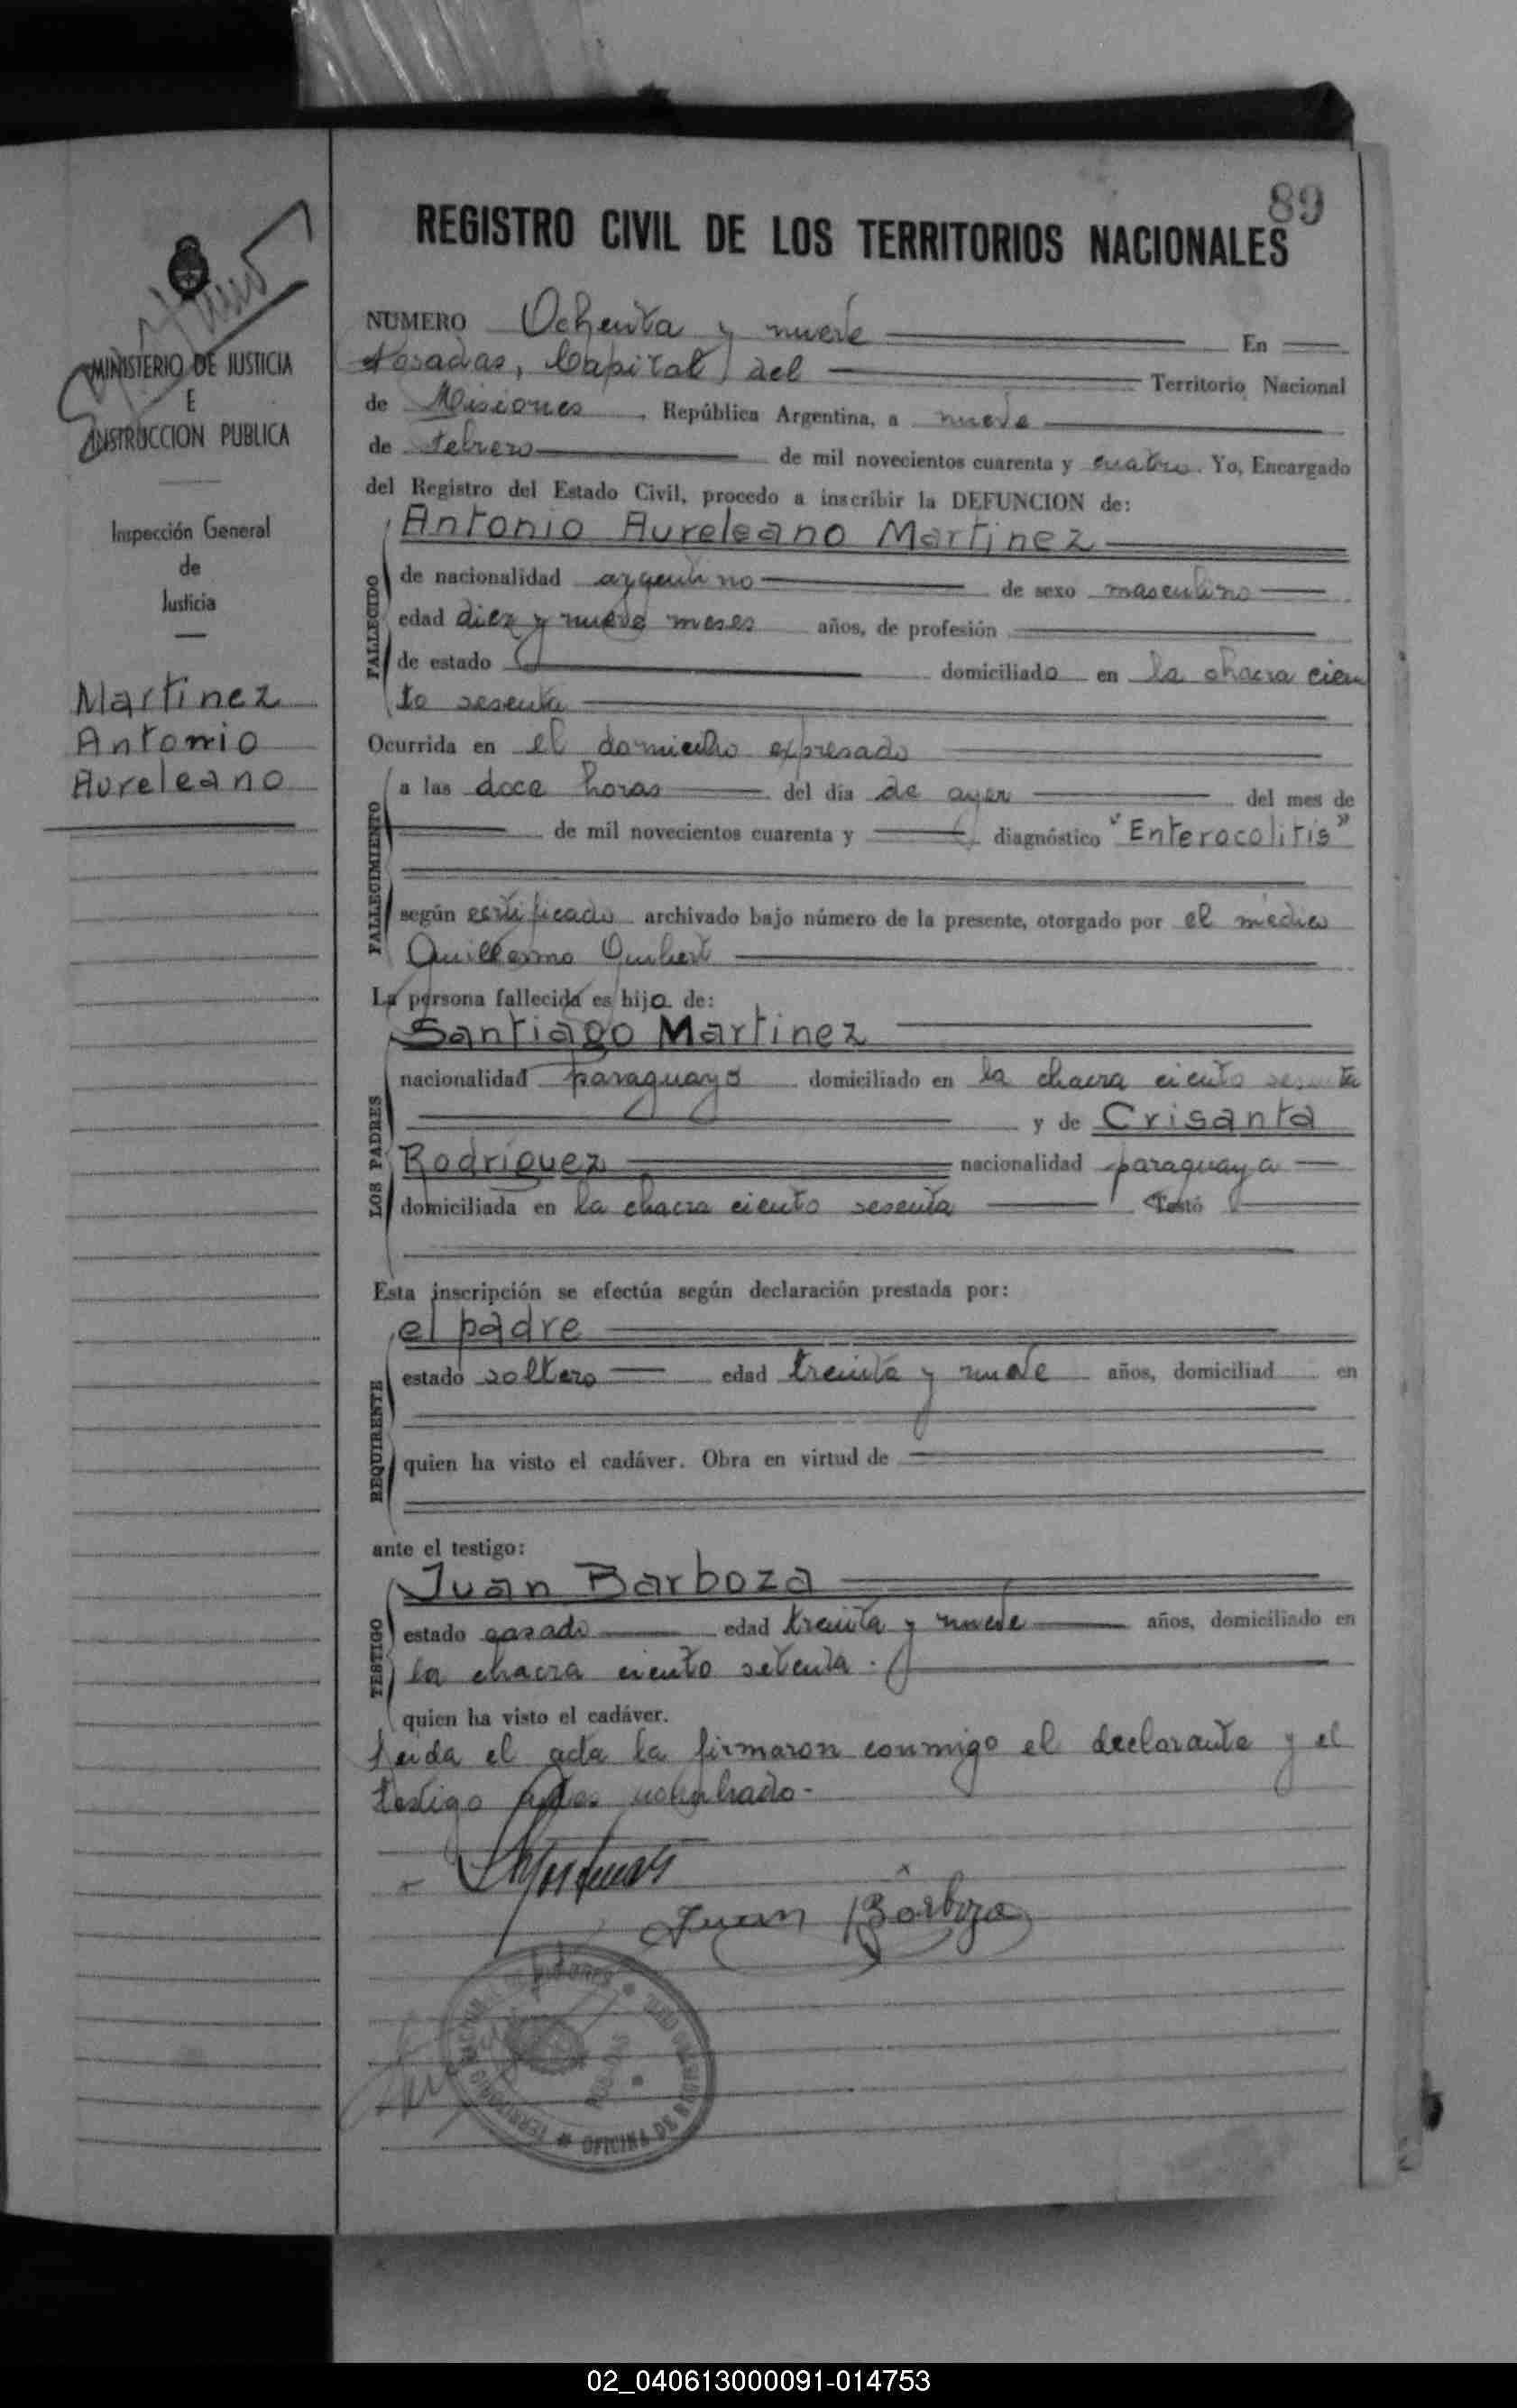 89
REGISTRO CIVIL DE LOS TERRITORIOS NACIONALES
MINISTERIO DE JUSTICIA
E
INSTRUCCION PUBLICA
Inspección General
de
Justicia
Martinez
Antonio
Aureleano
NUMERO Ochenta y nueve En
Posadas, Capital del Territorio Nacional
de Misiones, República Argentina, a nueve
de febrero de mil novecientos cuarenta y cuatro. Yo, Encargado
del Registro del Estado Civil, procedo a inscribir la DEFUNCION de:
FALLECIDO
Antonio Aureleano Martinez
de nacionalidad argentino de sexo masculino
edad diez y nueve meses años, de profesión
de estado domiciliado en la chacra cien
to sesenta
Ocurrida en el domicilio expresado
FALLECIMIENTO
a las doce horas del día de ayer del mes de
de mil novecientos cuarenta y diagnóstico "Enterocolitis"
según certificado archivado bajo número de la presente, otorgado por el médico
Guillermo
La persona fallecida es hijo de:
LOS PADRES
Santiago Martinez
nacionalidad paraguayo domiciliado en la chacra ciento sesenta
y de Crisanta
Rodriguez nacionalidad paraguaya
domiciliada en la chacra ciento sesenta Testó
Esta inscripción se efectúa según declaración prestada por:
REQUIRENTE
el padre
estado soltero edad treinta y nueve años, domiciliad en
quien ha visto el cadáver. Obra en virtud de
ante el testigo:
TESTIGO
Juan Barboza
estado casado edad treinta y nueve años, domiciliado en
la chacra ciento setenta.
quien ha visto el cadáver.
Leida el acta la firmaron conmigo el declarante y el
testigo antes nombrado-
Juan Barboza
OFICINA DE
02_040613000091-014753